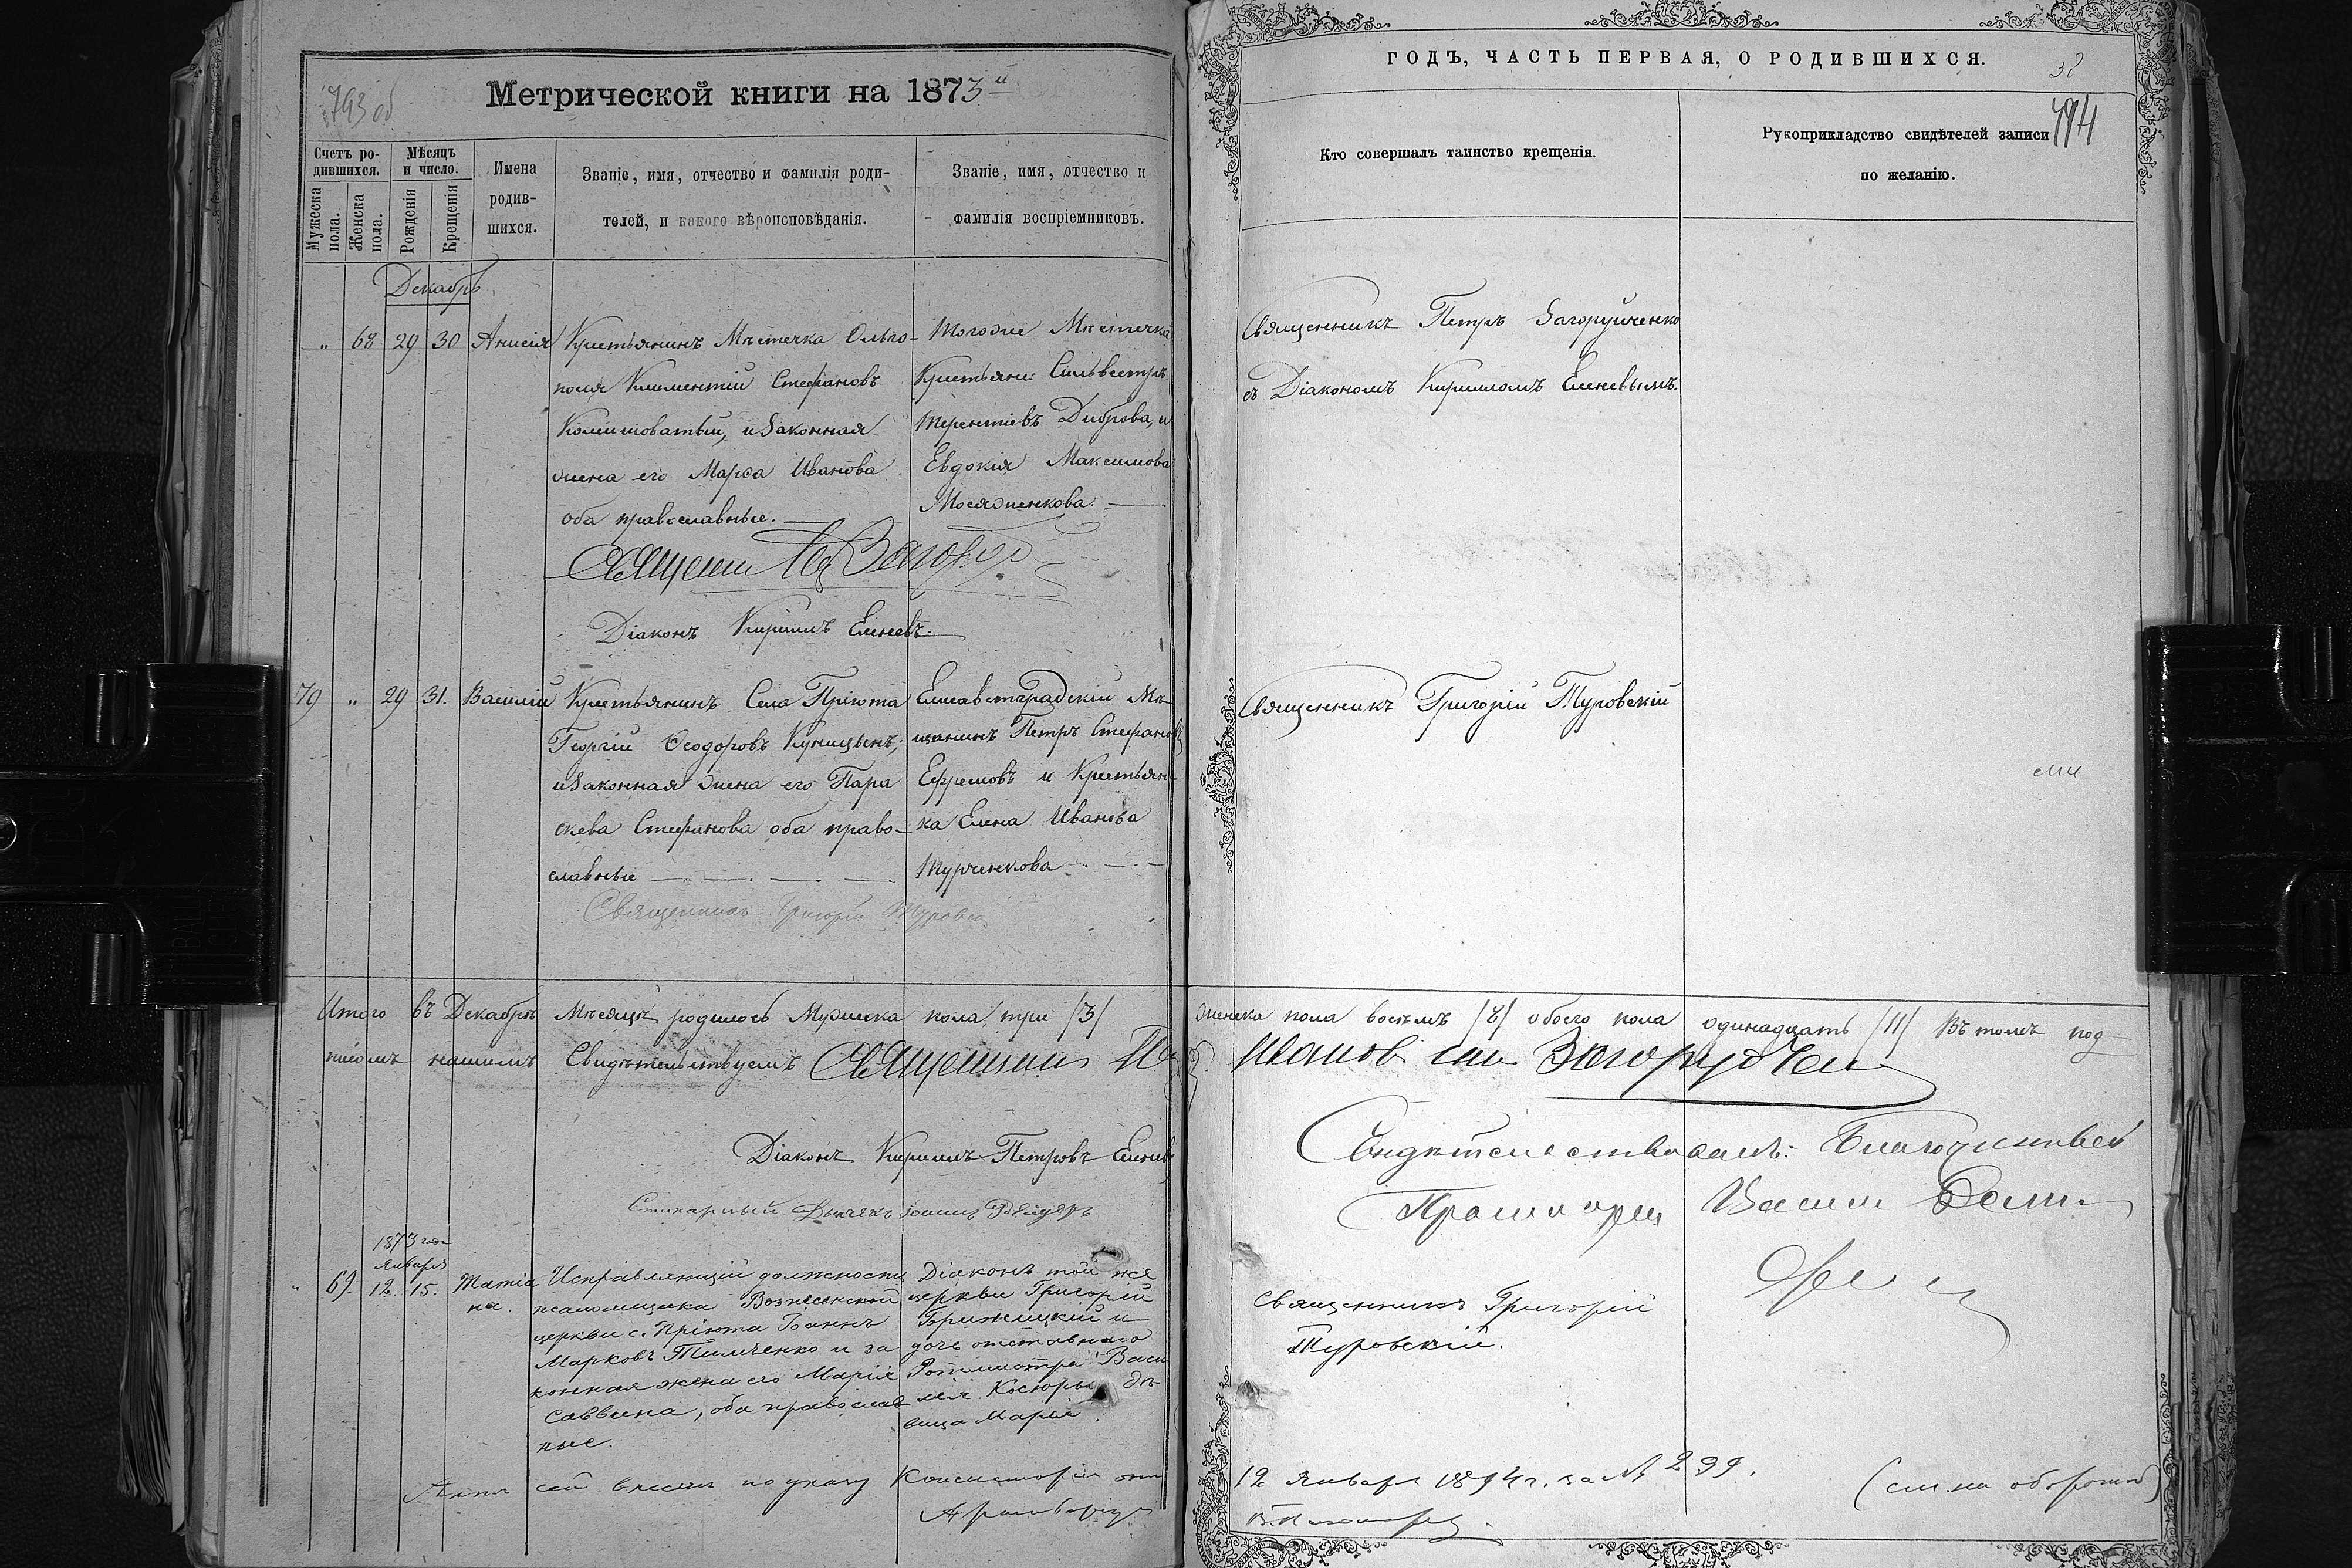 793 об
Метрической книги на 1873й
Счетъ ро-
дившихся.
Мужеска пола.
Женска пола.
Мѣсяцъ
и число.
Рожденія
Крещенія
Имена
родив-
шихся.
Званіе, имя, отчество и фамилія роди-
телей, и какого вѣроисповѣданія.
Званіе, имя, отчество и
фамилія воспріемниковъ.
Декабрь
„ 68 29 30 Анисія
Крестьянинъ Мѣстечка Ольго-
поля Климентій Стефановъ
и Законная
жена его Марѳа Иванова
оба православные.
Тогоже Мѣстечка
Крестьяни: Сильвестръ
Терентіевъ Диброва, и
Евдокія Максимова
Діаконъ Кириллъ Еленевъ.
79 „ 29 31. Василій
Крестьянинъ Села Пріюта
Георгій Ѳеодоровъ Куницынъ,
и Законная жена его Пара
скева Стефанова оба право-
славные
Елисаветградскій Мѣ-
щанинъ Петръ Стефановъ
Ефремовъ и Крестьян-
ка Елена Иванова
Турченкова
Священникъ Григорій Туровс
Итого въ Декабрѣ Мѣсяцѣ родилось Мужеска пола три /3/
писомъ нашимъ Свидѣтельствуемъ Священникъ
Діаконъ Кириллъ Петровъ Еленевъ
1873 года
Января
„ 69. 12. 15. Татіа
на.
Исправляющій должность
псаломщика Вознесенской
церкви с. Пріюта Іоаннъ
Марковъ Тимченко и за
конная жена его Марія
Саввина, оба православ
ные.
Діаконъ той же
церкви Григорій
и
дочь отставного
Ротмистра Васи
лія дѣ-
вица Марія.
Актъ сей внесенъ по указу Консисторіи отъ
ГОДЪ, ЧАСТЬ ПЕРВАЯ, О РОДИВШИХСЯ.
794
Кто совершалъ таинство крещенія.
Рукоприкладство свидѣтелей записи
по желанію.
Священникъ Петръ Загоруйченко
съ Діакономъ Кирилломъ Еленевымъ.
Священникъ Григорій Туровскій
женска пола восемь /8/ обоего пола одинадцать /11/ Въ томъ под-
Свидѣтельствовалъ: Благочинный
Василій
Священникъ Григорій
Туровскій.
12 Января 1894 г. за № 299.
(см. на оборотѣ)